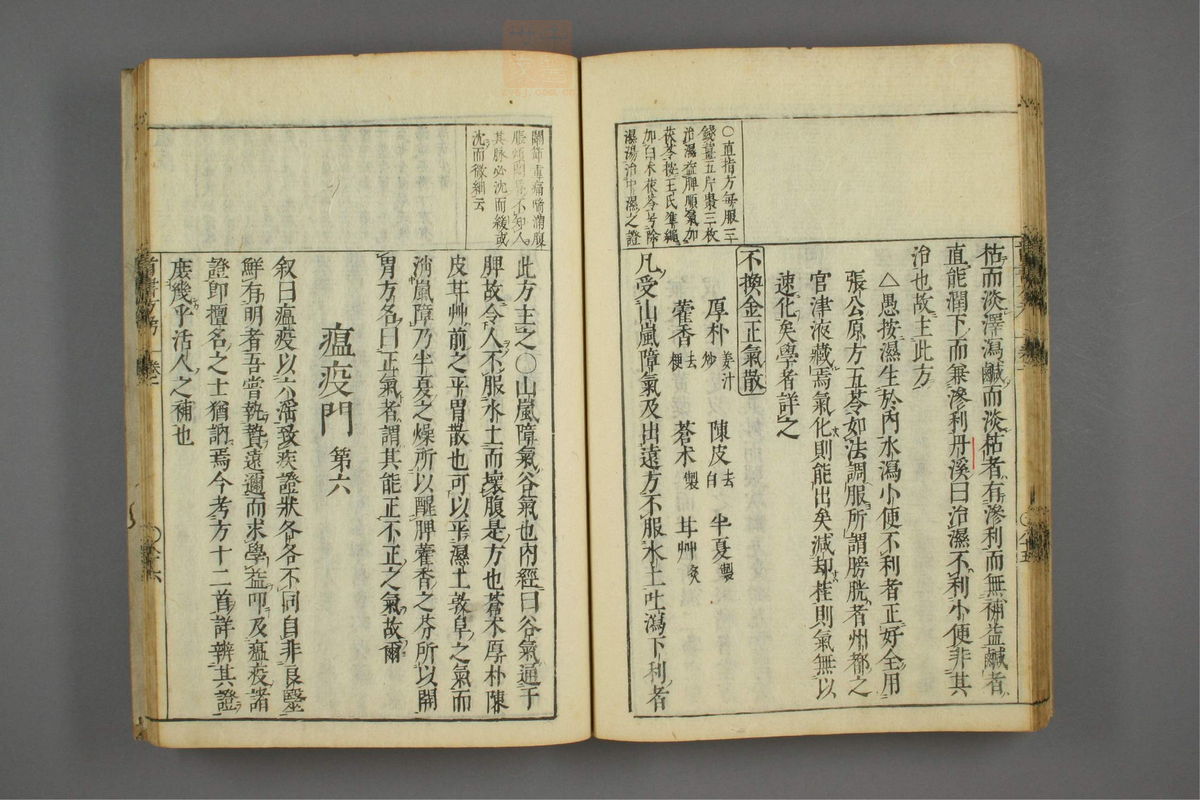 〇直指方每服三
錢薑五片棗三枚
治濕益脾順氣加
茯苓按王氏準繩
加白朮茯苓号除
濕湯治中濕之證
枯而淡澤瀉鹹而淡枯者有滲利而無補益鹹者
直能潤下而兼滲利丹溪曰治濕不利小便非其
治也故主此方
△愚按濕生於內水瀉小便不利者正好全用
張公原方五苓如法調服所謂膀胱者州都之
官津液藏焉氣化則能出矣減却桂則氣無以
速化矣學者詳之
不換金正氣散
厚朴 姜汁炒 陳皮 去白 半夏 製
藿香 去梗 蒼朮 製 甘艸 炙
凡受山嵐障氣及出遠方不服水土吐瀉下利者
關節重痛喘滿腹
脹煩悶昏不知人
其脉必沈而緩或
沈而微細云
此方主之〇山嵐障氣谷氣也內經曰谷氣通于
脾故令人不服水土而壞腹是方也蒼朮厚朴陳
皮甘艸前之平胃散也可以平濕土敦阜之氣而
消嵐障乃半夏之燥所以醒脾藿香之芬所以開
胃方名曰正氣者謂其能正不正之氣故爾
瘟疫門 第六
叙曰瘟疫以六淫致疾證狀各各不同自非良醫
鮮有明者吾嘗執贄遠邇而求學益叩及瘟疫諸
證即擅名之士猶訥焉今考方十二首詳辨其證
庶幾乎活人之補也